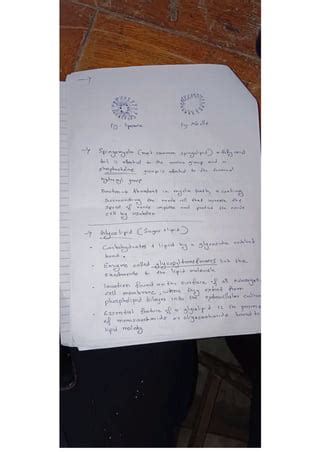 fig - liposome
fig - Micelle
→ Sphingomyelin (most common sphingolipid) a fatty acid
tail is attached to the amino group and a
phosphocholine group is attached to the terminal
hydroxyl group
Function → Abundant in myelin sheath, a coating
surrounding the nerve cell that increases the
speed of nerve impulse and protect the nerve
cell by insulation
→ Glycolipid (Sugar + lipid)
• Carbohydrates + lipid by a glycosidic covalent
bond.
• Enzyme called glycosyltransferases link the
saccharide to the lipid molecule
• Location found on the surface of all eukaryotic
cell membrane, where they extend from
phospholipid bilayer into the extracellular
• Essential feature of a glycolipid is the presence
of monosaccharide or oligosaccharide bound to
lipid moiety